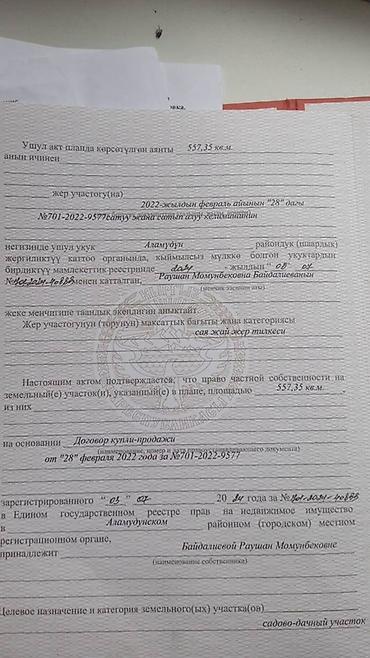 Ушул акт планда көрсөтүлгөн аянты 557,35 кв.м.
анын ичинен
жер участогу(на)
2022-жылдын февраль айынын "28" дагы
№701-2022-9577сатуу жана сатып алуу келишиминин
негизинде ушул укук Аламудүн райондук (шаардык)
жергиликтүү каттоо органында, кыймылсыз мүлккө болгон укуктардын
бирдиктүү мамлекеттик реестринде 2024 - жылдын " 03 " 07
№ менен катталган, Раушан Момунбековна Байдалиеванын
(менчик ээсинин аты)
жеке менчигине таандык экендигин аныктайт
Жер участогунун (торунун) максаттык багыты жана категориясы
сая жай жер тилкеси
Настоящим актом подтверждается, что право частной собственности на
земельный(е) участок(и), указанный(е) в плане, площадью 557,35 кв.м.
из них
на основании Договор купли-продажи
(наименование, номер и дата документа)
от "28" февраля 2022 года за №701-2022-9577
зарегистрированного " 03 " 07 2024 года за №
в Едином государственном реестре прав на недвижимое имущество
в Аламудунском районном (городском) местном
регистрационном органе,
принадлежит Байдалиевой Раушан Момунбековне
(наименование собственника)
Целевое назначение и категория земельного(ых) участка(ов)
садово-дачный участок